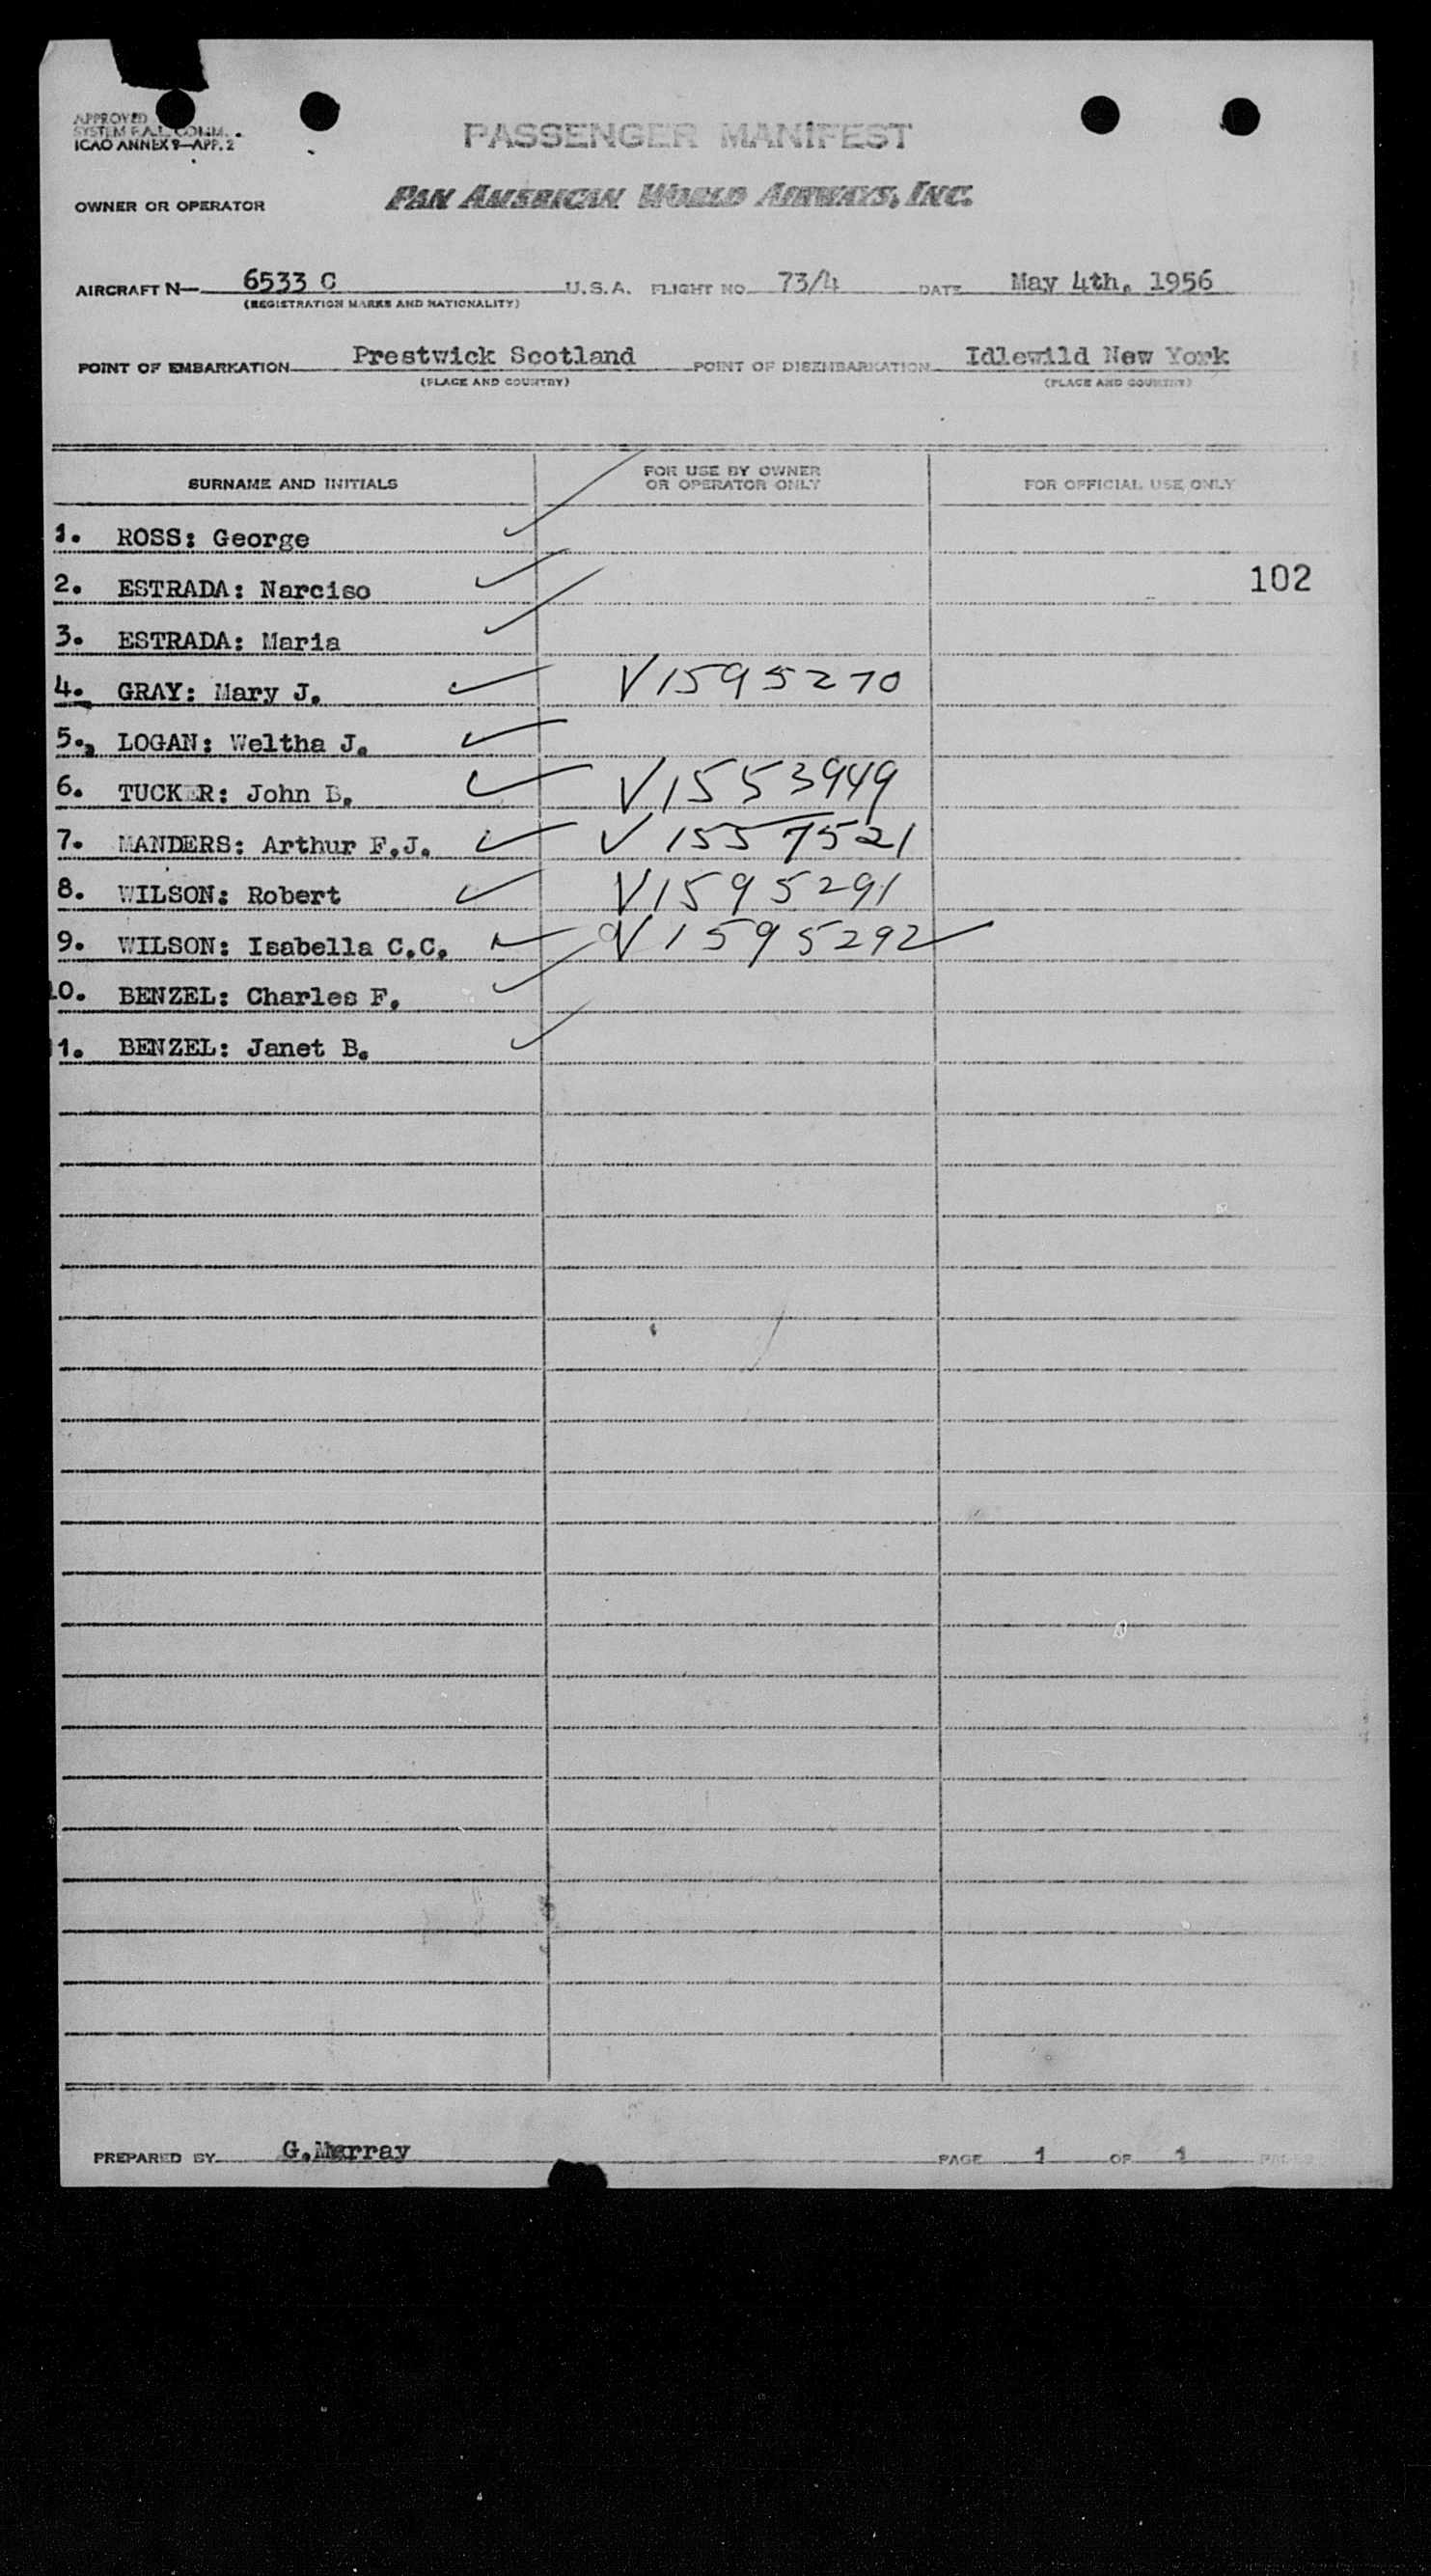 APPROVED
SYSTEM F.A.L. COMM.
ICAO ANNEX 9—APP. 2
PASSENGER MANIFEST
OWNER OR OPERATOR PAN AMERICAN WORLD AIRWAYS, INC.
AIRCRAFT N— 6533 C U.S.A. FLIGHT NO. 73/4 DATE May 4th, 1956
(REGISTRATION MARKS AND NATIONALITY)
POINT OF EMBARKATION Prestwick Scotland POINT OF DISEMBARKATION Idlewild New York
(PLACE AND COUNTRY) (PLACE AND COUNTRY)
SURNAME AND INITIALS FOR USE BY OWNER OR OPERATOR ONLY FOR OFFICIAL USE ONLY
1. ROSS: George
2. ESTRADA: Narciso 102
3. ESTRADA: Maria
4. GRAY: Mary J. V1595270
5. LOGAN: Weltha J.
6. TUCKER: John B. V1553949
7. MANDERS: Arthur F.J. V 1557521
8. WILSON: Robert V1595291
9. WILSON: Isabella C.C. V1595292
10. BENZEL: Charles F.
11. BENZEL: Janet B.
PREPARED BY G.Murray PAGE 1 OF 1 PAGES